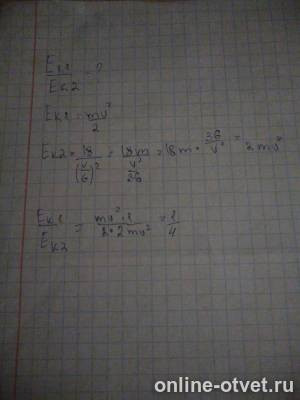 Eк1/Eк2 = ?
Eк1 = mv²/2
Eк2 = 18/(v/6)² = 18m/(v²/36) = 18m · 36/v² = 2mv²
Eк1/Eк2 = mv²·1/2·2mv² = 1/4
online-otvet.ru